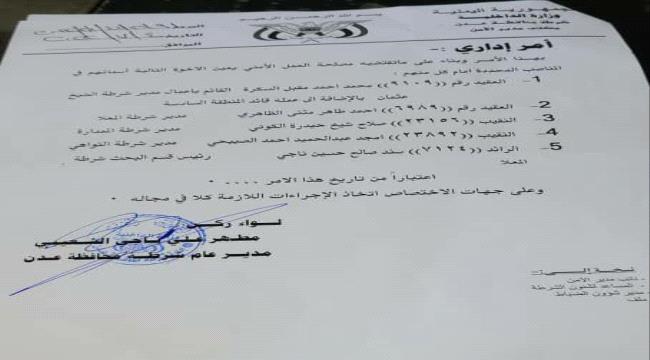 بسم الله الرحمن الرحيم
الجمهورية اليمنية
وزارة الداخلية
شرطة محافظة عدن
مكتب مدير الأمن
أمر إداري :-
بهذا الأمر وبناء على ماتقتضيه مصلحة العمل الأمني يعين الاخوة التالية أسمائهم في
المناصب المحددة أمام كل منهم :
1- العقيد رقم ((٩١٠٩)) محمد احمد مقبل السكرة القائم بأعمال مدير شرطة الشيخ
عثمان بالإضافة الى عمله قائد المنطقة السادسة
2- العقيد رقم ((٦٩٨٩)) احمد طاهر مثنى الظاهري مدير شرطة المعلا
3- النقيب ((٢٣١٥٦)) صلاح شيخ حيدرة الكوني مدير شرطة الممدارة
4- النقيب ((٢٣٨٩٢)) امجد عبدالحميد احمد الصبيحي مدير شرطة التواهي
5- الرائد ((٧١٢٤)) سند صالح حسين ناجي رئيس قسم البحث شرطة
المعلا
اعتباراً من تاريخ هذا الامر ....
وعلى جهات الاختصاص اتخاذ الإجراءات اللازمة كلا في مجاله .
لواء ركن
مطهر علي ناجي الشعيبي
مدير عام شرطة محافظة عدن
نسخة إلى :-
- نائب مدير الأمن
- مساعد لشئون الشرطة
- مدير شؤون الضباط
- ملف